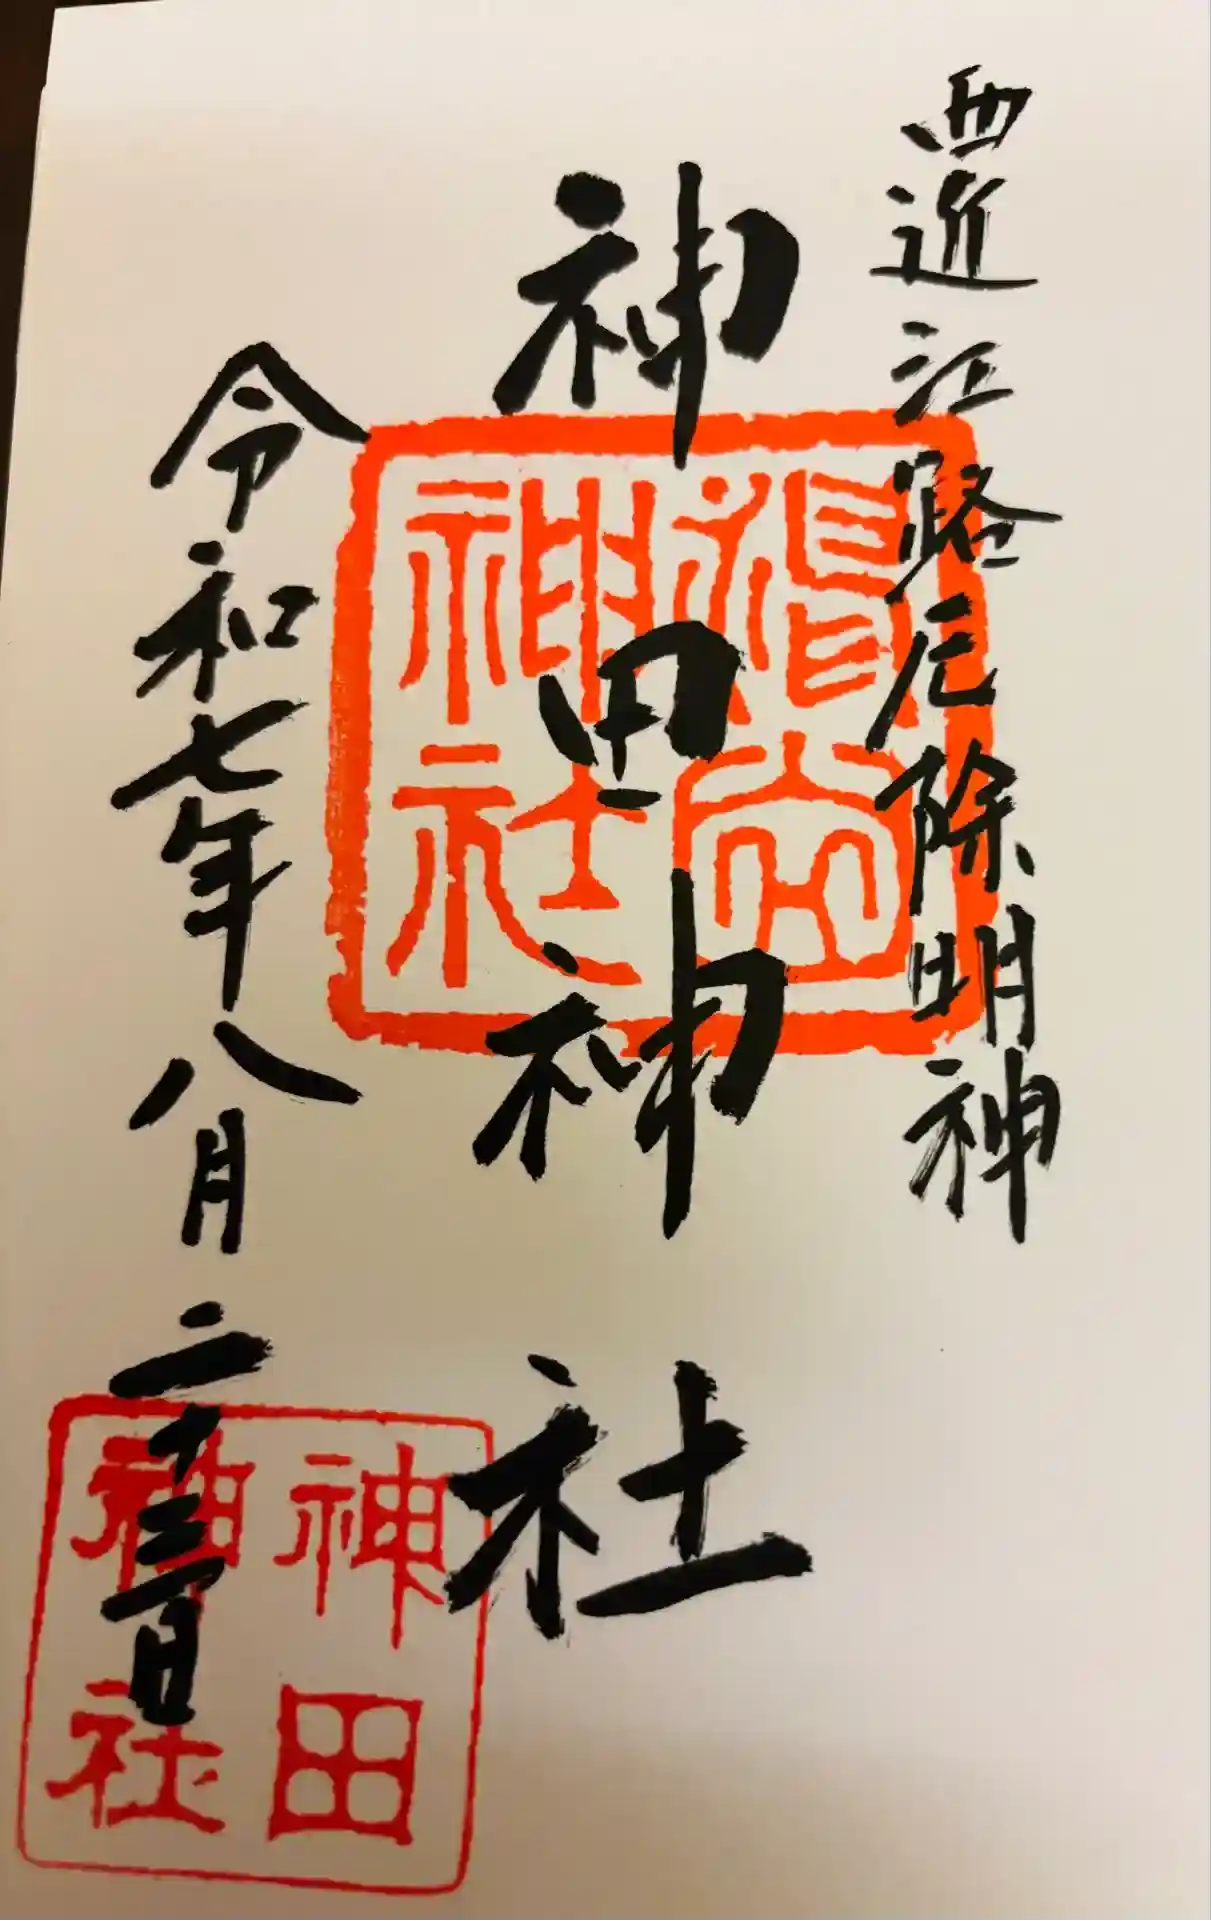 西近江路厄除明神
神田神社
令和七年八月二十三日
神田
神社
神社